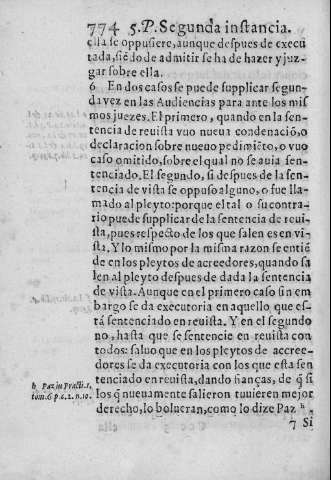 774 5.P. Segunda instancia.
ella se oppusiere, aunque despues de execu
tada, siẽdo de admitir se ha de hazer y juz-
gar sobre ella.
6 En dos casos se puede supplicar segun-
da vez en las Audiencias para ante los mis
mos juezes. El primero, quando en la sen-
tencia de reuista vuo nueua condenaciõ, o
declaracion sobre nueuo pedimiẽto, o vuo
caso omitido, sobre el qual no se auia sen-
tenciado. El segundo, si despues de la sen-
tencia de vista se oppuso alguno, o fue lla-
mado al pleyto: porque el tal o su contra-
rio puede supplicar de la sentencia de reui-
sta, pues respecto de los que salen es en vi-
sta. Y lo mismo por la misma razon se entiẽ
de en los pleytos de acreedores, quando sa
len al pleyto despues de dada la sentencia
de vista. Aunque en el primero caso sin em
bargo se da executoria en aquello que es-
tà sentenciado en reuista. Y en el segundo
no, hasta que se sentencie en reuista con
todos: saluo que en los pleytos de accree-
dores se da executoria con los que esta sen
tenciado en reuista, dando fianças, de q̃ si
los q̃ nueuamente salieron tuuieren mejor
derecho, lo bolueran, como lo dize Paz h.
h Paz in Practi. 1.
tom. 6. p. c. 2. n. 10.
7 Si